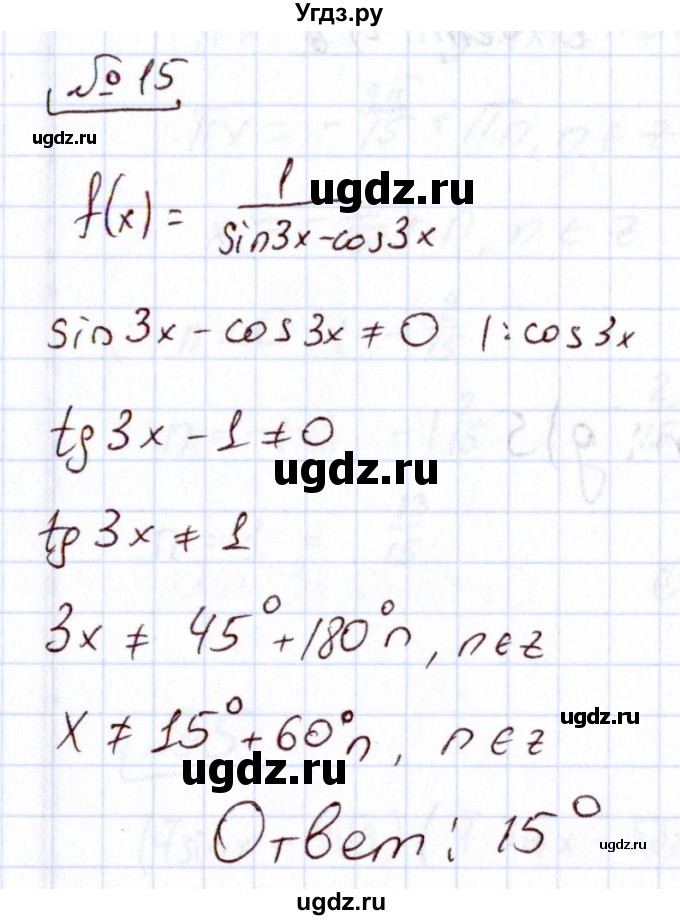 Угдз.ру
№ 15
ugdz.ru
f(x) = 1 / (sin3x-cos3x)
ugdz.ru
sin3x - cos3x ≠ 0 |:cos3x
tg3x - 1 ≠ 0
ugdz.ru
tg3x ≠ 1
3x ≠ 45° + 180°n, n∈z
ugdz.ru
x ≠ 15° + 60°n, n∈z
ugdz.ru
Ответ: 15°
ugdz.ru
ugdz.ru